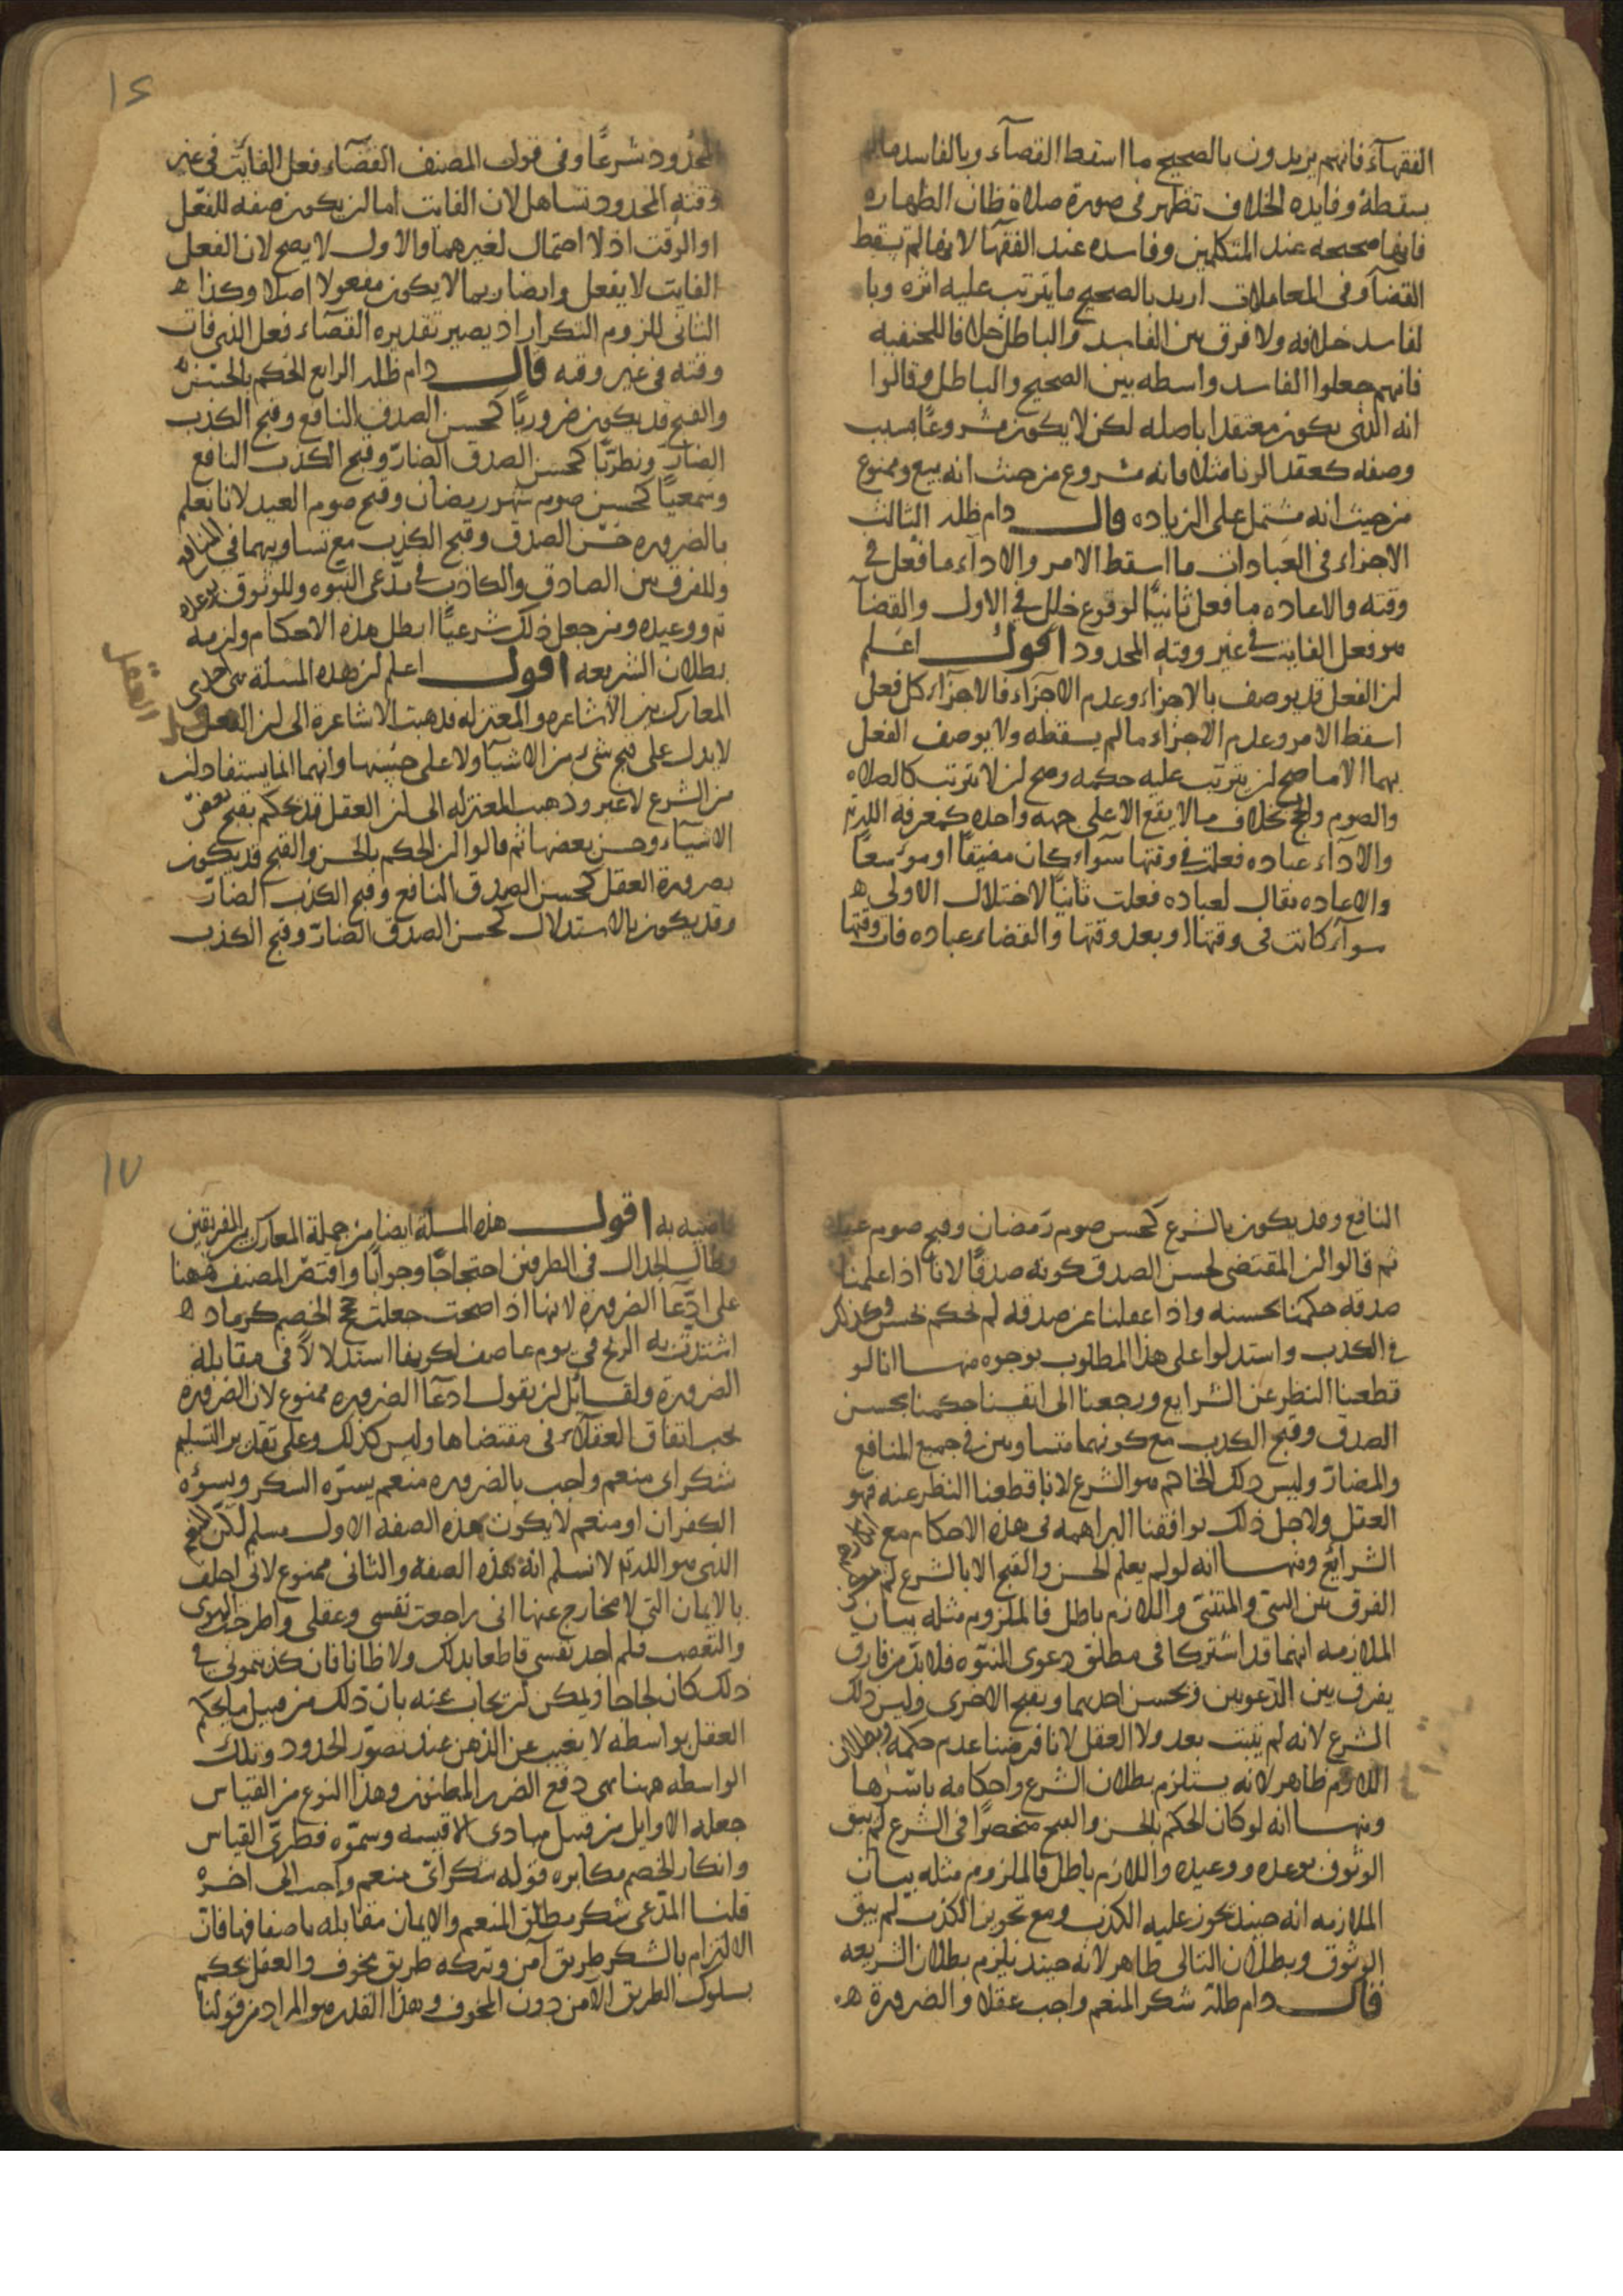 الفقهآء فانهم يريدون بالصحيح ما اسقط القضآء وبالفاسد مالم
يسقطه وفايده الخلاف تظهر فى صورة صلاة ظان الطهاره
فانها صحيحه عند المتكلمين وفاسده عند الفقهآ لانها لم تسقط
القضآ وفى المعاملات اريد بالصحيح ما يترتب عليه اثره وبا
لفاسد خلافه ولا فرق بين الفاسد والباطل خلافا للحنفيه
فانهم جعلوا الفاسد واسطه بين الصحيح والباطل وقالوا
انه الذى يكون منعقدا باصله لكن لا يكون مشروعًا بسبب
وصفه كعقد الربا مثلا فانه مشروع من حيث انه بيع وممنوع
من حيث انه مشتمل على الزياده قال دام ظله الثالث
الاجزاء فى العبادات ما اسقط الامر والادآء ما فعل فى
وقته والاعاده ما فعل ثانيًا لوقوع خلل فى الاول والقضآ
هو فعل الفايت فى غير وقته المحدود اقول اعلم
ان الفعل قد يوصف بالاجزاء وعدم الاجزآء فالاجزاء كل فعل
اسقط الامر وعدم الاجزاء ما لم يسقطه ولا يوصف الفعل
بهما الا ما صح ان يترتب عليه حكمه وصح ان لا يترتب كالصلاه
والصوم والحج بخلاف ما لا يقع الا على جهه واحده كمعرفة الله تم
والادآء عباده فعلت فى وقتها سوآء كان مضيقًا او موسعًا
والاعاده يقال لعباده فعلت ثانيًا لاختلال الاولى ه
سوآء كانت فى وقتها او بعد وقتها والقضاء عباده فات وقتها
١٦
المحدود شرعًا وفى قول المصنف القضآء فعل الفايت فى غير
وقته المحدود تساهل لان الفايت اما ان يكون صفه للفعل
او الوقت اذ لا احتمال لغيرهما والاول لا يصح لان الفعل
الفايت لا يفعل وايضا ربما لا يكون مفعولا اصلا وكذا ه
الثانى للزوم التكرار اذ يصير تقديره القضآء فعل الذى فات
وقته فى غير وقته قال دام ظله الرابع الحكم بالحسن
والقبح قد يكون ضروريًا كحسن الصدق النافع وقبح الكذب
الضارّ ونظريًّا كحسن الصدق الضارّ وقبح الكذب النافع
وسمعيًا كحسن صوم شهر رمضان وقبح صوم العيد لانا نعلم
بالضروره حسن الصدق وقبح الكذب مع تساويهما فى المنافع
وللفرق بين الصادق والكاذب فى مدّعى النبوه وللوثوق بوعده
تم ووعيده ومن جعل ذلك شرعيًّا ابطل هذه الاحكام ولزمه
بطلان الشريعه اقول اعلم ان هذه المسئلة هى احدى
المعارك بين الاشاعره والمعتزله فذهبت الاشاعرة الى ان العقل
العقل
لا يدل على قبح شئ من الاشيآ ولا على حسنها وانهما انما يستفادان
من الشرع لا غير وذهب المعتزله الى ان العقل قد يحكم بقبح بعض
الاشيآء وحسن بعضها ثم قالوا ان الحكم بالحسن والقبح قد يكون
بضرورة العقل كحسن الصدق النافع وقبح الكذب الضارّ
وقد يكون بالاستدلال كحسن الصدق الضارّ وقبح الكذب
النافع وقد يكون بالشرع كحسن صوم رمضان وقبح صوم عيد
ثم قالوا ان المقتضى لحسن الصدق كونه صدقًا لانا اذا علمنا
صدقه حكمنا بحسنه واذا اغفلنا عن صدقه لم نحكم بحسن وكذلك
فى الكذب واستدلوا على هذا المطلوب بوجوه منها انا لو
قطعنا النظر عن الشرايع ورجعنا الى انفسنا حكمنا بحسن
الصدق وقبح الكذب مع كونهما متساويين فى جميع المنافع
والمضارّ وليس ذلك الحاكم هو الشرع لانا قطعنا النظر عنه فهو
العقل ولاجل ذلك يوافقنا البراهمه فى هذه الاحكام مع انكارهم
الشرايع ومنها انه لو لم يعلم الحسن والقبح الا بالشرع لم
الفرق بين النبى والمتنبى واللازم باطل فالملزوم مثله بيان
الملازمه انهما قد اشتركا فى مطلق دعوى النبوه فلا بدّ من فارق
يفرق بين الدّعويين ويحسن احديهما ويقبح الاخرى وليس ذلك
الشرع لانه لم يثبت بعد ولا العقل لانا فرضنا عدم حكمه وبطلان
اللازم ظاهر لانه يستلزم بطلان الشرع واحكامه باسرها
ومنها انه لو كان الحكم بالحسن والقبح منحصرًا فى الشرع لم يبق
الوثوق بوعده ووعيده واللازم باطل فالملزوم مثله بيان
الملازمه انه حينئذ يجوز عليه الكذب ومع تجويز الكذب لم يبق
الوثوق وبطلان التالى ظاهر لانه حينئذ يلزم بطلان الشريعه
قال دام ظله شكر المنعم واجب عقلا والضرورة ه
١٧
قاضيه به اقول هذه المسئلة ايضا من جملة المعارك بين الفريقين
وطال الجدال فى الطرفين احتجاجًا وجوابًا واقتصر المصنف ههنا
على ادّعآ الضرورة لانها اذا صحت جعلت حجج الخصم كرماد ه
اشتدت به الريح فى يوم عاصف لكونها استدلالًا فى مقابلة
الضرورة ولقائل ان يقول ادعآ الضروره ممنوع لان الضرورة
يجب اتفاق العقلاء فى مقتضاها وليس كذلك وعلى تقدير التسليم
شكر اى منعم واجب بالضروره منعم يسرّه الشكر ويسؤه
الكفران او منعم لا يكون بهذه الصفه الاول مسلم لكن
الذى هو الله تم لا نسلم انه بهذه الصفه والثانى ممنوع لانى احلف
بالايمان التى لا مخارج عنها انى راجعت نفسى وعقلى واطرحت الهوى
والتعصب فلم اجد نفسى قاطعا بذلك ولا ظانا فان كذبتمونى فى
ذلك كان لجاجا ويمكن ان يجاب عنه بان ذلك من قبيل ما يحكم
العقل بواسطه لا يغيب عن الذهن عند تصوّر الحدود وتلك
الواسطه ههنا هى دفع الضرر المظنون وهذا النوع من القياس
جعله الاوايل من قبيل مبادى الاقيسه وسموّه فطرىّ القياس
وانكار الخصم مكابره قوله شكر اىّ منعم واجب الى اخره
قلنا المدّعى شكر مطلق المنعم والايمان مقابله باضعافها فان
الالتزام بالشكر طريق آمن وتركه طريق مخوف والعقل يحكم
بسلوك الطريق الآمن دون المخوف وهذا القدر هو المراد من قولنا